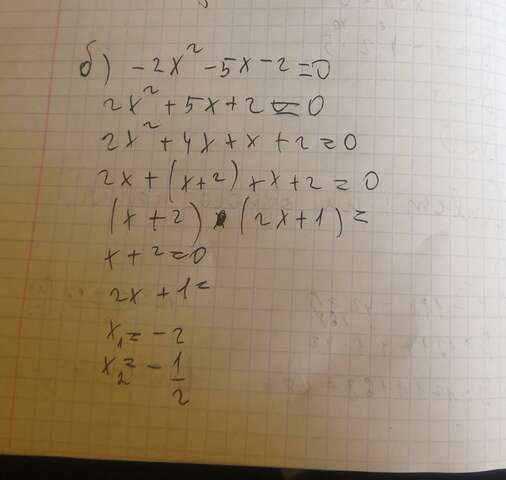 б) -2x² - 5x - 2 = 0
2x² + 5x + 2 = 0
2x² + 4x + x + 2 = 0
2x + (x+2) + x + 2 = 0
(x + 2) · (2x + 1) =
x + 2 = 0
2x + 1 =
x₁ = -2
x₂ = - 1/2